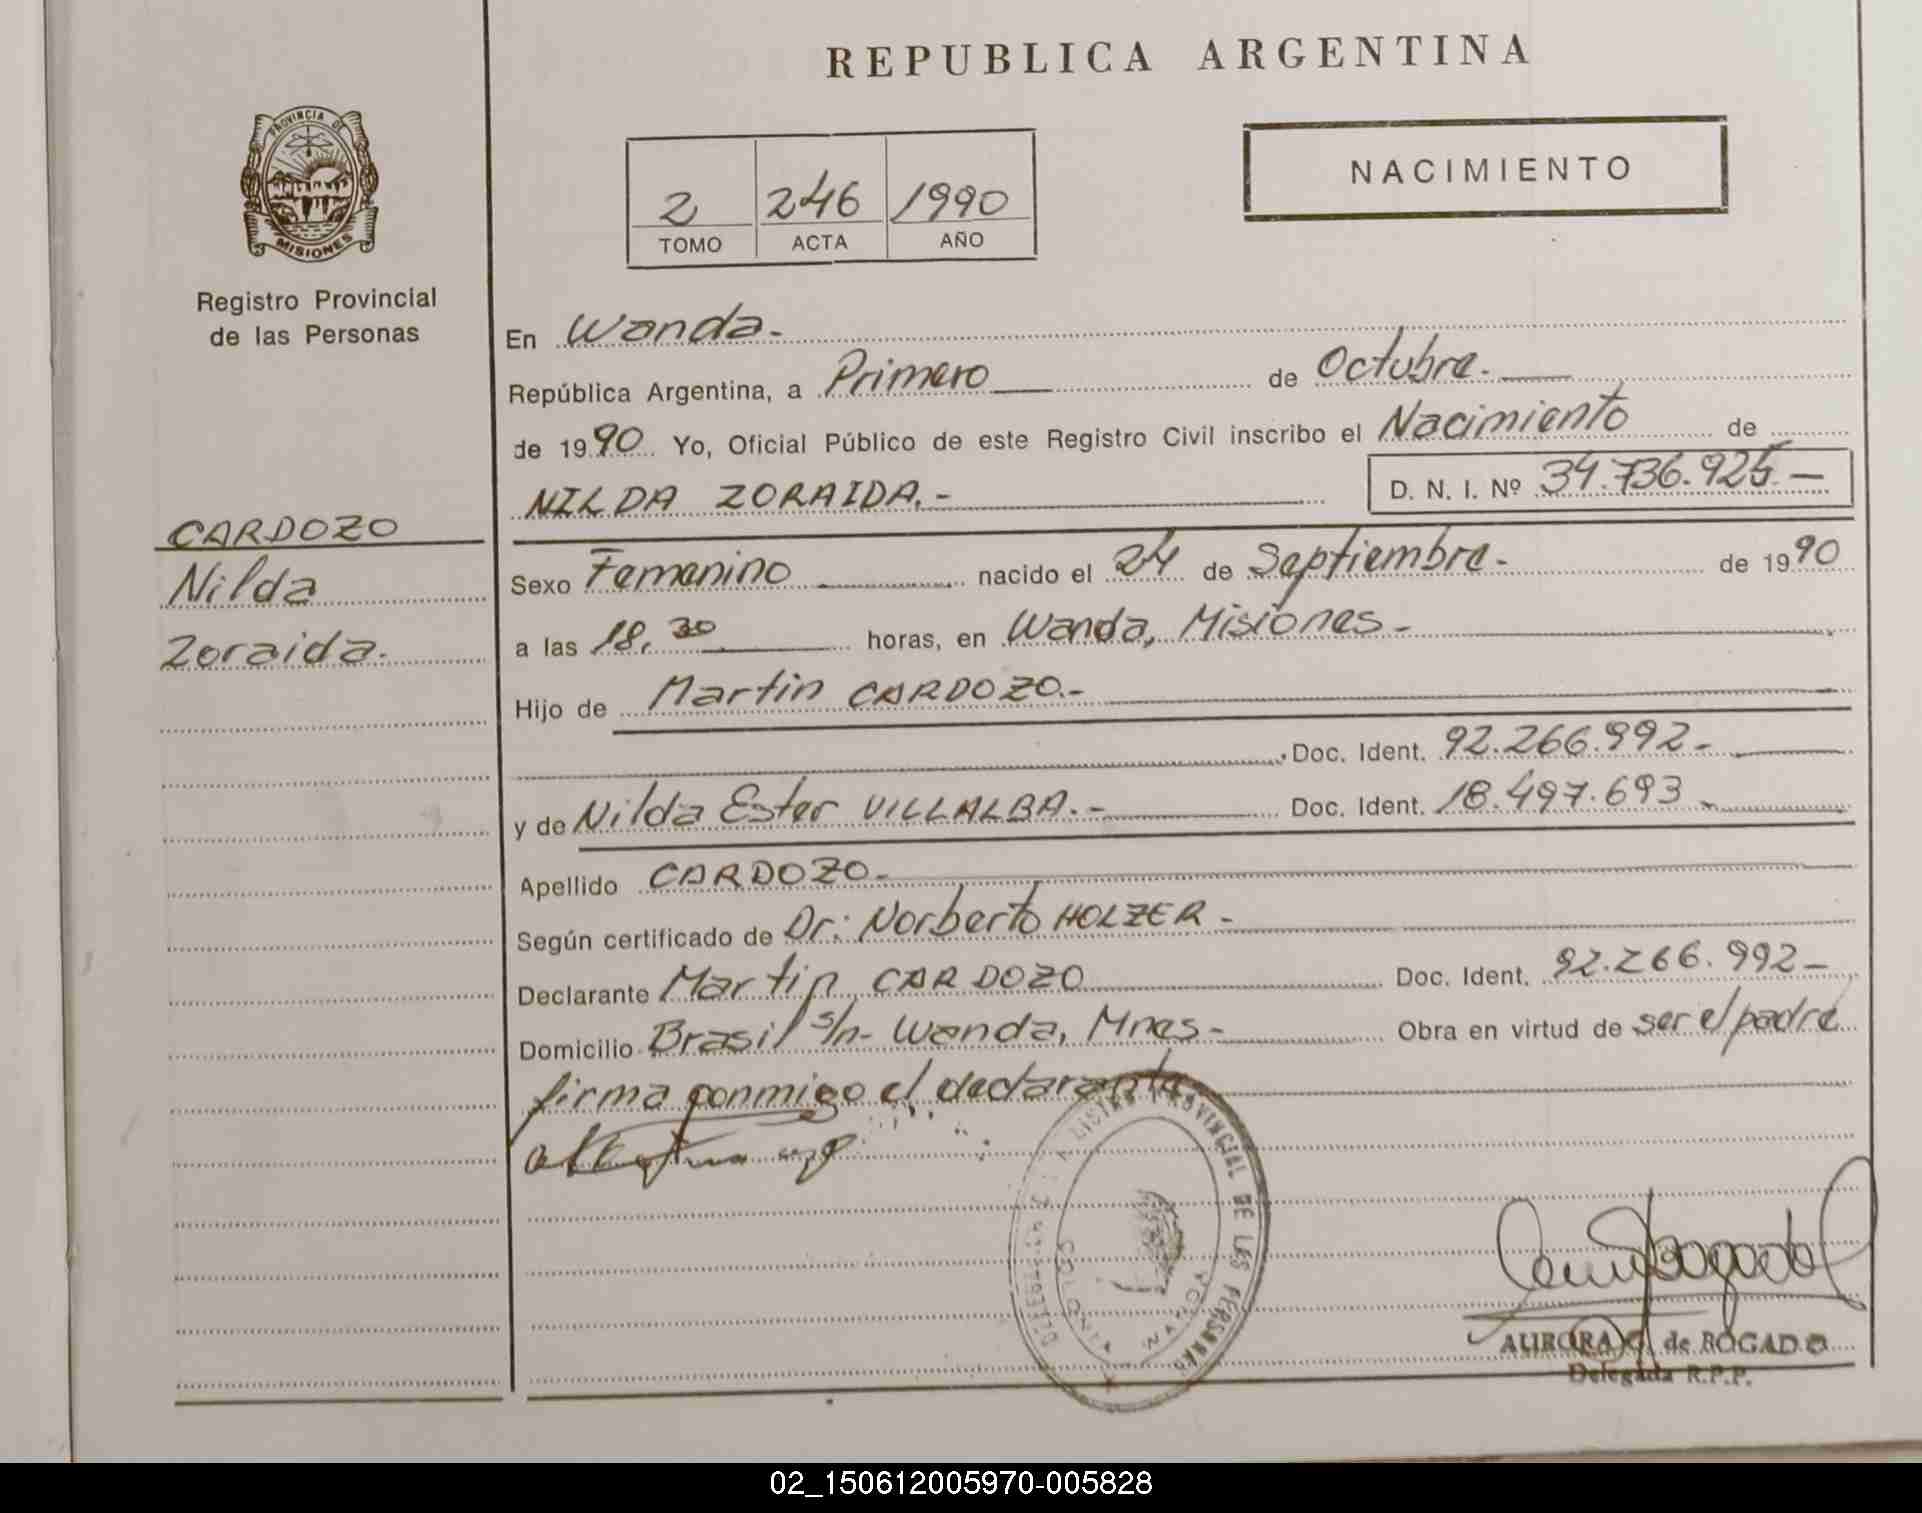 REPUBLICA ARGENTINA
PROVINCIA DE
MISIONES
Registro Provincial
de las Personas
2 246 1990
TOMO ACTA AÑO
NACIMIENTO
CARDOZO
Nilda
Zoraida.
En Wanda.-
República Argentina, a Primero de Octubre.
de 1990 Yo, Oficial Público de este Registro Civil inscribo el Nacimiento de
NILDA ZORAIDA.- D. N. I. Nº 34.736.925.-
Sexo Femenino nacido el 24 de Septiembre.- de 1990
a las 18,30 horas, en Wanda, Misiones.-
Hijo de Martin CARDOZO.-
Doc. Ident. 92.266.992-
y de Nilda Ester VILLALBA.- Doc. Ident. 18.497.693-
Apellido CARDOZO-
Según certificado de Dr: Norberto HOLZER-
Declarante Martin CARDOZO Doc. Ident. 92.266.992-
Domicilio Brasil s/n- Wanda, Mnes- Obra en virtud de ser el padre
firma conmigo el declarante
PROVINCIAL DE LAS PERSONAS
COLONIA WANDA
AURORA G. de BOGADO
Delegada R.P.P.
02_150612005970-005828